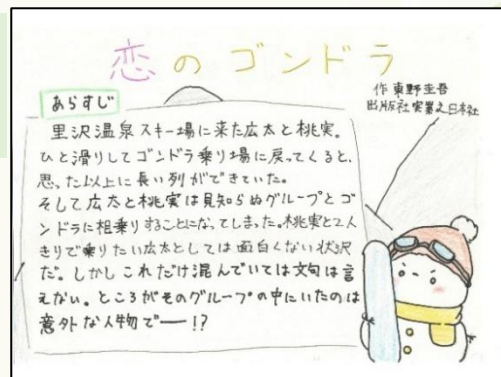 恋のゴンドラ
作 東野圭吾
出版社 実業之日本社
あらすじ
里沢温泉スキー場に来た広太と桃実。
ひと滑りしてゴンドラ乗り場に戻ってくると、
思った以上に長い列ができていた。
そして広太と桃実は見知らぬグループとゴ
ンドラに相乗りすることになってしまった。桃実と2人
きりで乗りたい広太としては面白くない状況
だ。しかしこれだけ混んでいては文句は言
えない。ところがそのグループの中にいたのは
意外な人物で──!?